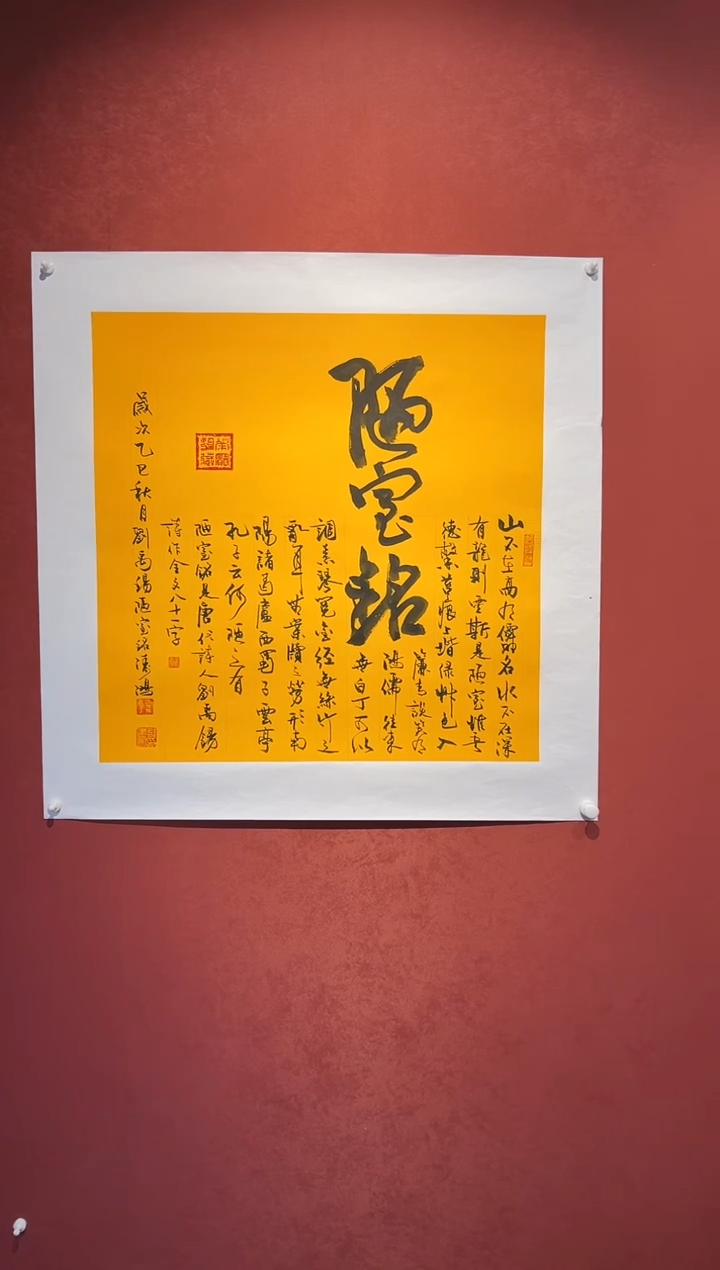 山不在高有僊名水不在深
有龍則靈斯是陋室惟吾
德馨苔痕上堦绿艸色入
簾青談笑有
鴻儒往來
無白丁可以
陋室銘
調素琴閱金經無絲竹之
亂耳無案牘之勞形南
陽諸葛廬西蜀子雲亭
孔子云何陋之有
陋室銘是唐代詩人劉禹錫
詩作全文八十一字
歲次乙巳秋月劉禹錫陋室銘